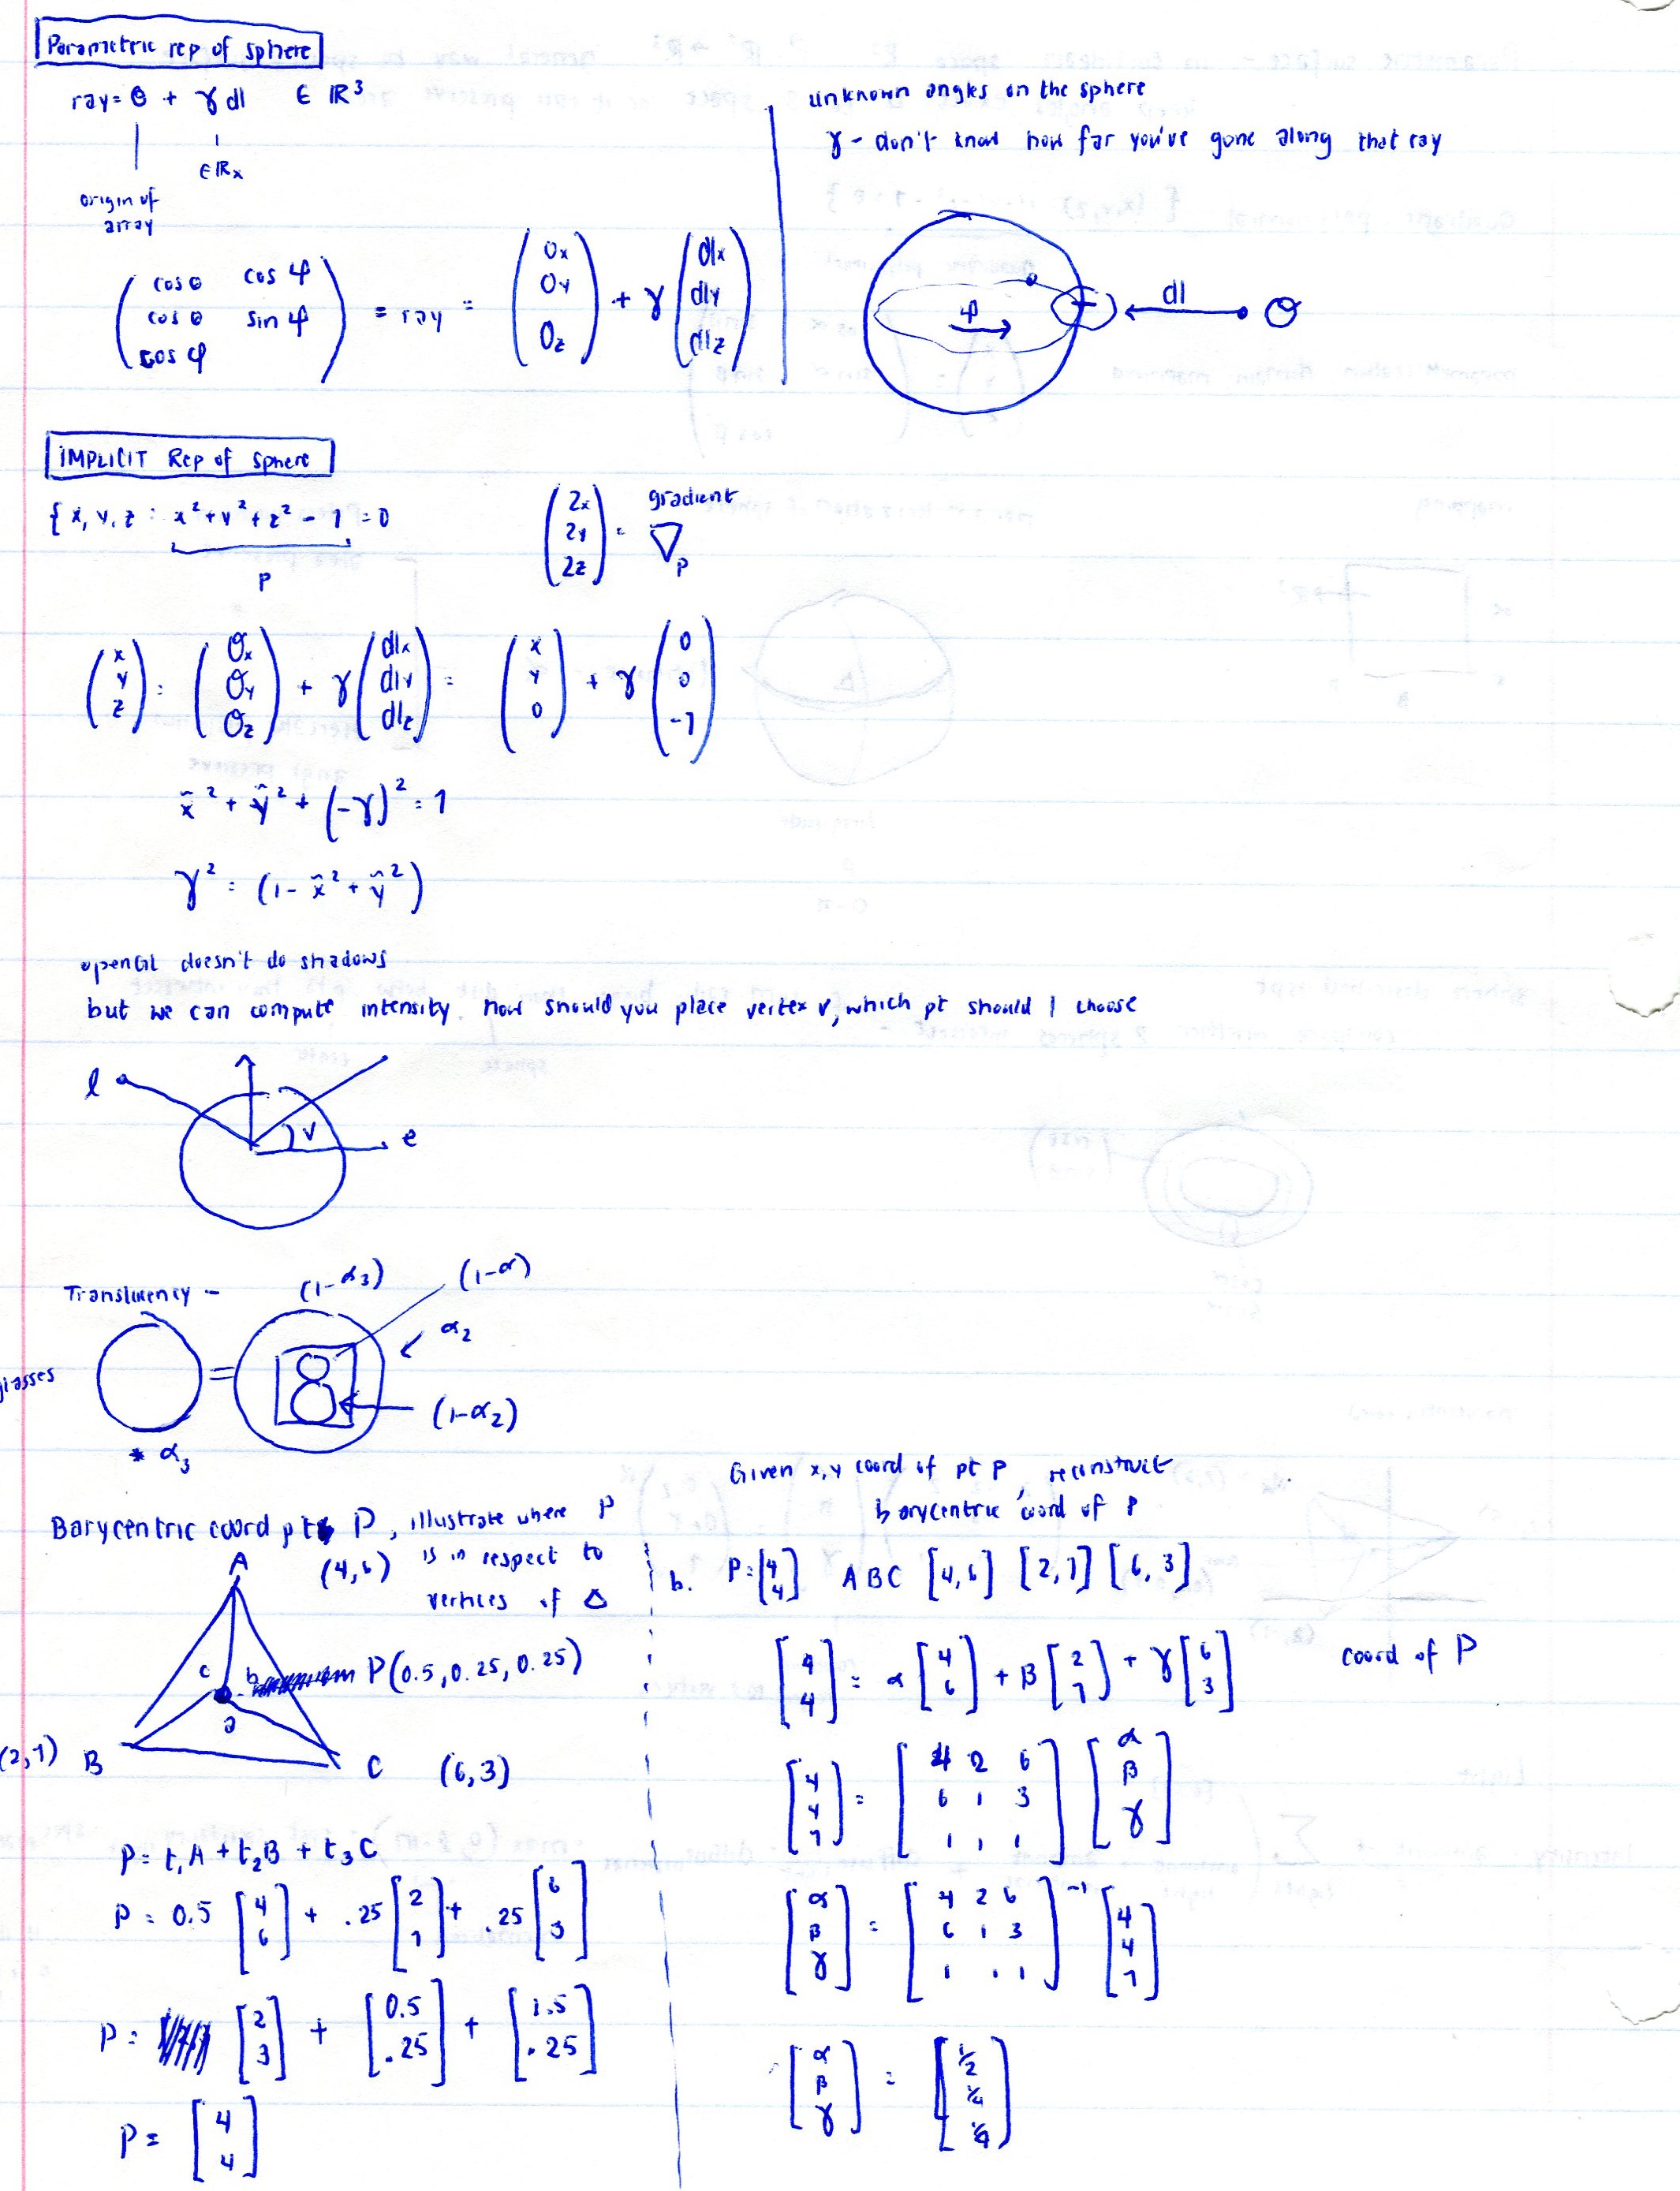 Parametric rep of sphere
ray = O + γ dl ∈ IR³
∈ IRx
origin of
array
( cos θ cos φ
cos θ sin φ
cos φ ) = ray = ( Ox
Oy
Oz ) + γ ( dlx
dly
dlz )
unknown angles on the sphere
γ - don't know how far you've gone along that ray
φ
dl
O
IMPLICIT Rep of sphere
{ x, y, z : x² + y² + z² - 1 = 0
P
( 2x
2y
2z ) = ∇p
gradient
( x
y
z ) = ( Ox
Oy
Oz ) + γ ( dlx
dly
dlz ) = ( x
y
0 ) + γ ( 0
0
-1 )
x̂² + ŷ² + (-γ)² = 1
γ² = (1 - x̂² + ŷ²)
openGL doesn't do shadows
but we can compute intensity. how should you place vertex v, which pt should I choose
l
v
e
Translucency -
(1-α3)
(1-α)
α2
glasses
=
(1-α2)
* α3
Barycentric coord pt P, illustrate where P
is in respect to
vertices of △
A
(4,6)
c
b
P(0.5, 0.25, 0.25)
a
(2,1) B
C (6,3)
P = t1A + t2B + t3C
P = 0.5 [ 4
6 ] + .25 [ 2
1 ] + .25 [ 6
3 ]
P = [ 2
3 ] + [ 0.5
.25 ] + [ 1.5
.25 ]
P = [ 4
4 ]
Given x,y coord of pt P, reconstruct
barycentric coord of P
b. P = [ 4
4 ] ABC [4,6] [2,1] [6,3]
[ 4
4 ] = α [ 4
6 ] + β [ 2
1 ] + γ [ 6
3 ]
coord of P
[ 4
4
1 ] = [ 4 2 6
6 1 3
1 1 1 ] [ α
β
γ ]
[ α
β
γ ] = [ 4 2 6
6 1 3
1 1 1 ]⁻¹ [ 4
4
1 ]
[ α
β
γ ] = [ 1/2
1/4
1/4 ]